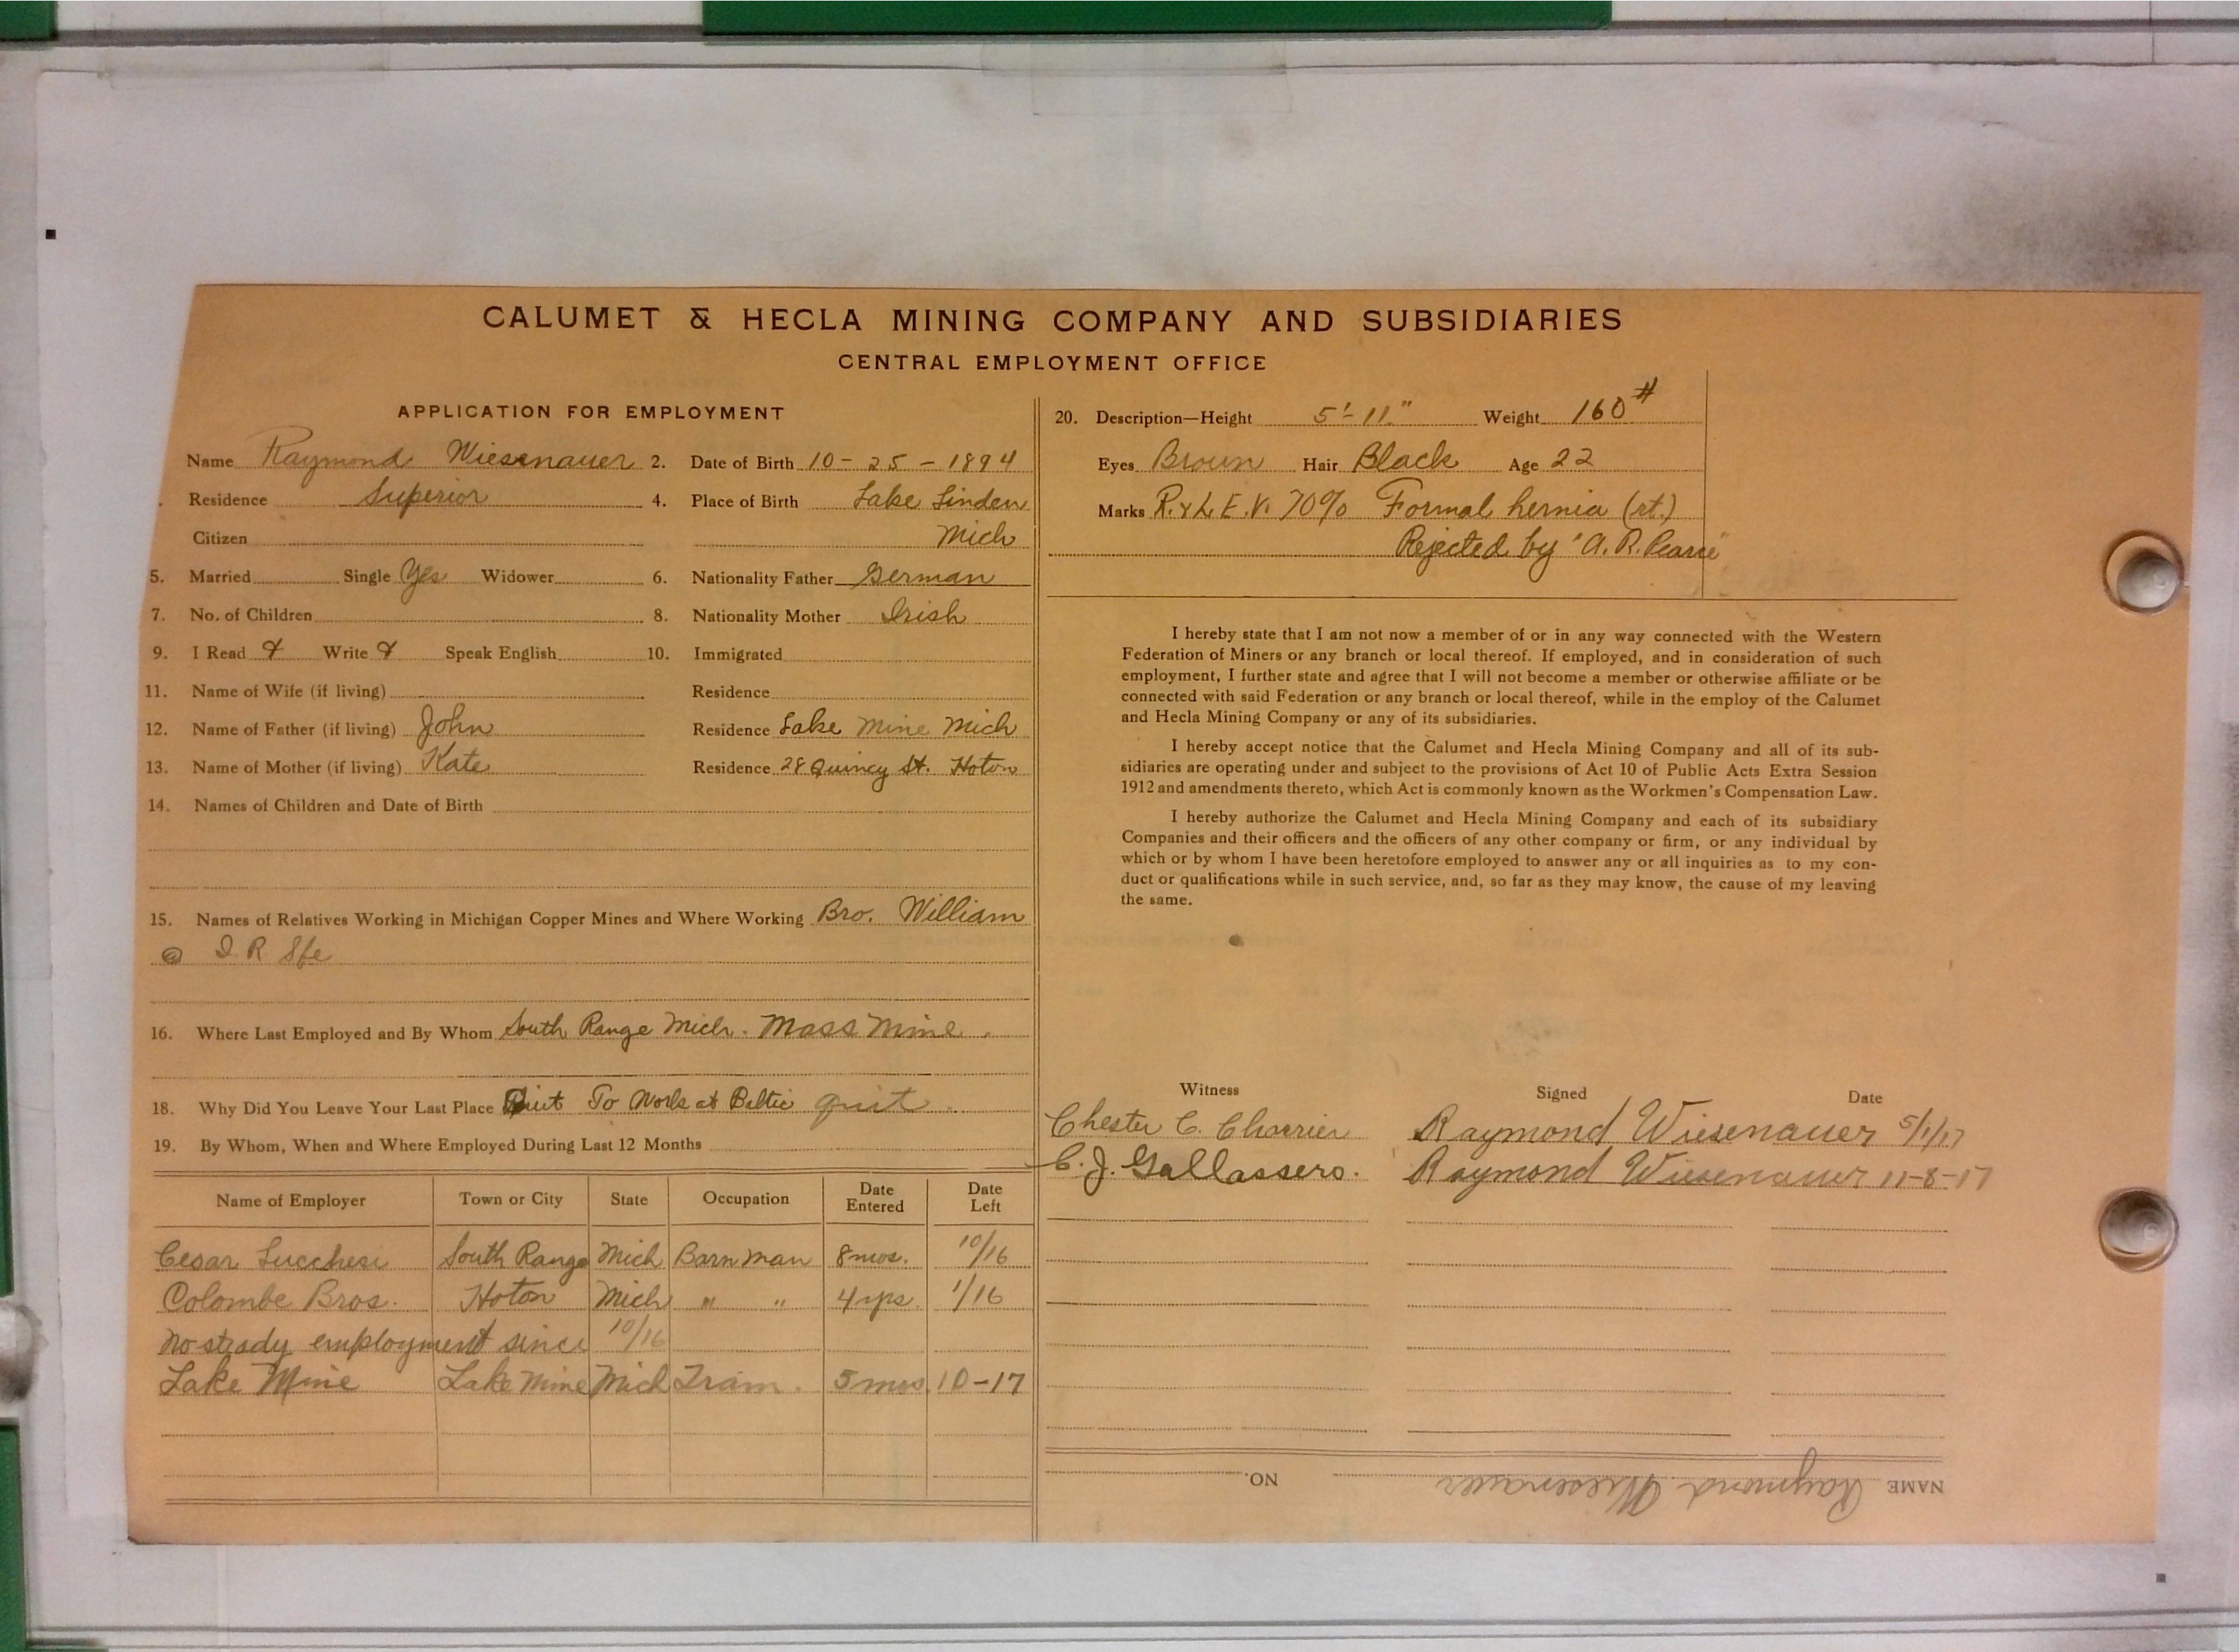 CALUMET & HECLA MINING COMPANY AND SUBSIDIARIES
CENTRAL EMPLOYMENT OFFICE
APPLICATION FOR EMPLOYMENT
Name Raymond Wiesenauer 2. Date of Birth 10-25-1894
Residence Superior 4. Place of Birth Lake Linden
Citizen Mich
5. Married Single Yes Widower 6. Nationality Father German
7. No. of Children 8. Nationality Mother Irish
9. I Read Write Speak English 10. Immigrated
11. Name of Wife (if living) Residence
12. Name of Father (if living) John Residence Lake Mine Mich
13. Name of Mother (if living) Kate Residence 28 Quincy St. Hoton
14. Names of Children and Date of Birth
15. Names of Relatives Working in Michigan Copper Mines and Where Working Bro. William
@ I. R. Sfe
16. Where Last Employed and By Whom South Range Mich. Mass Mine.
18. Why Did You Leave Your Last Place Quit To Work at Baltic quit
19. By Whom, When and Where Employed During Last 12 Months
Name of Employer Town or City State Occupation Date Entered Date Left
Cesar Lucchesi South Range Mich Barn man 8 mos. 10/16
Colombe Bros. Hoton Mich " " 4 yrs. 1/16
No steady employment since 10/16
Lake Mine Lake Mine Mich Tram. 5 mos. 10-17
20. Description—Height 5'-11" Weight 160#
Eyes Brown Hair Black Age 22
Marks R. & L. E. V. 70% Formal hernia (rt.)
Rejected by "A. R. Pearse"
I hereby state that I am not now a member of or in any way connected with the Western
Federation of Miners or any branch or local thereof. If employed, and in consideration of such
employment, I further state and agree that I will not become a member or otherwise affiliate or be
connected with said Federation or any branch or local thereof, while in the employ of the Calumet
and Hecla Mining Company or any of its subsidiaries.
I hereby accept notice that the Calumet and Hecla Mining Company and all of its sub-
sidiaries are operating under and subject to the provisions of Act 10 of Public Acts Extra Session
1912 and amendments thereto, which Act is commonly known as the Workmen's Compensation Law.
I hereby authorize the Calumet and Hecla Mining Company and each of its subsidiary
Companies and their officers and the officers of any other company or firm, or any individual by
which or by whom I have been heretofore employed to answer any or all inquiries as to my con-
duct or qualifications while in such service, and, so far as they may know, the cause of my leaving
the same.
Witness Signed Date
Chester C. Charrier Raymond Wiesenauer 5/1/17
C. J. Gallassero. Raymond Wiesenauer 11-8-17
NAME Raymond Wiesenauer NO.